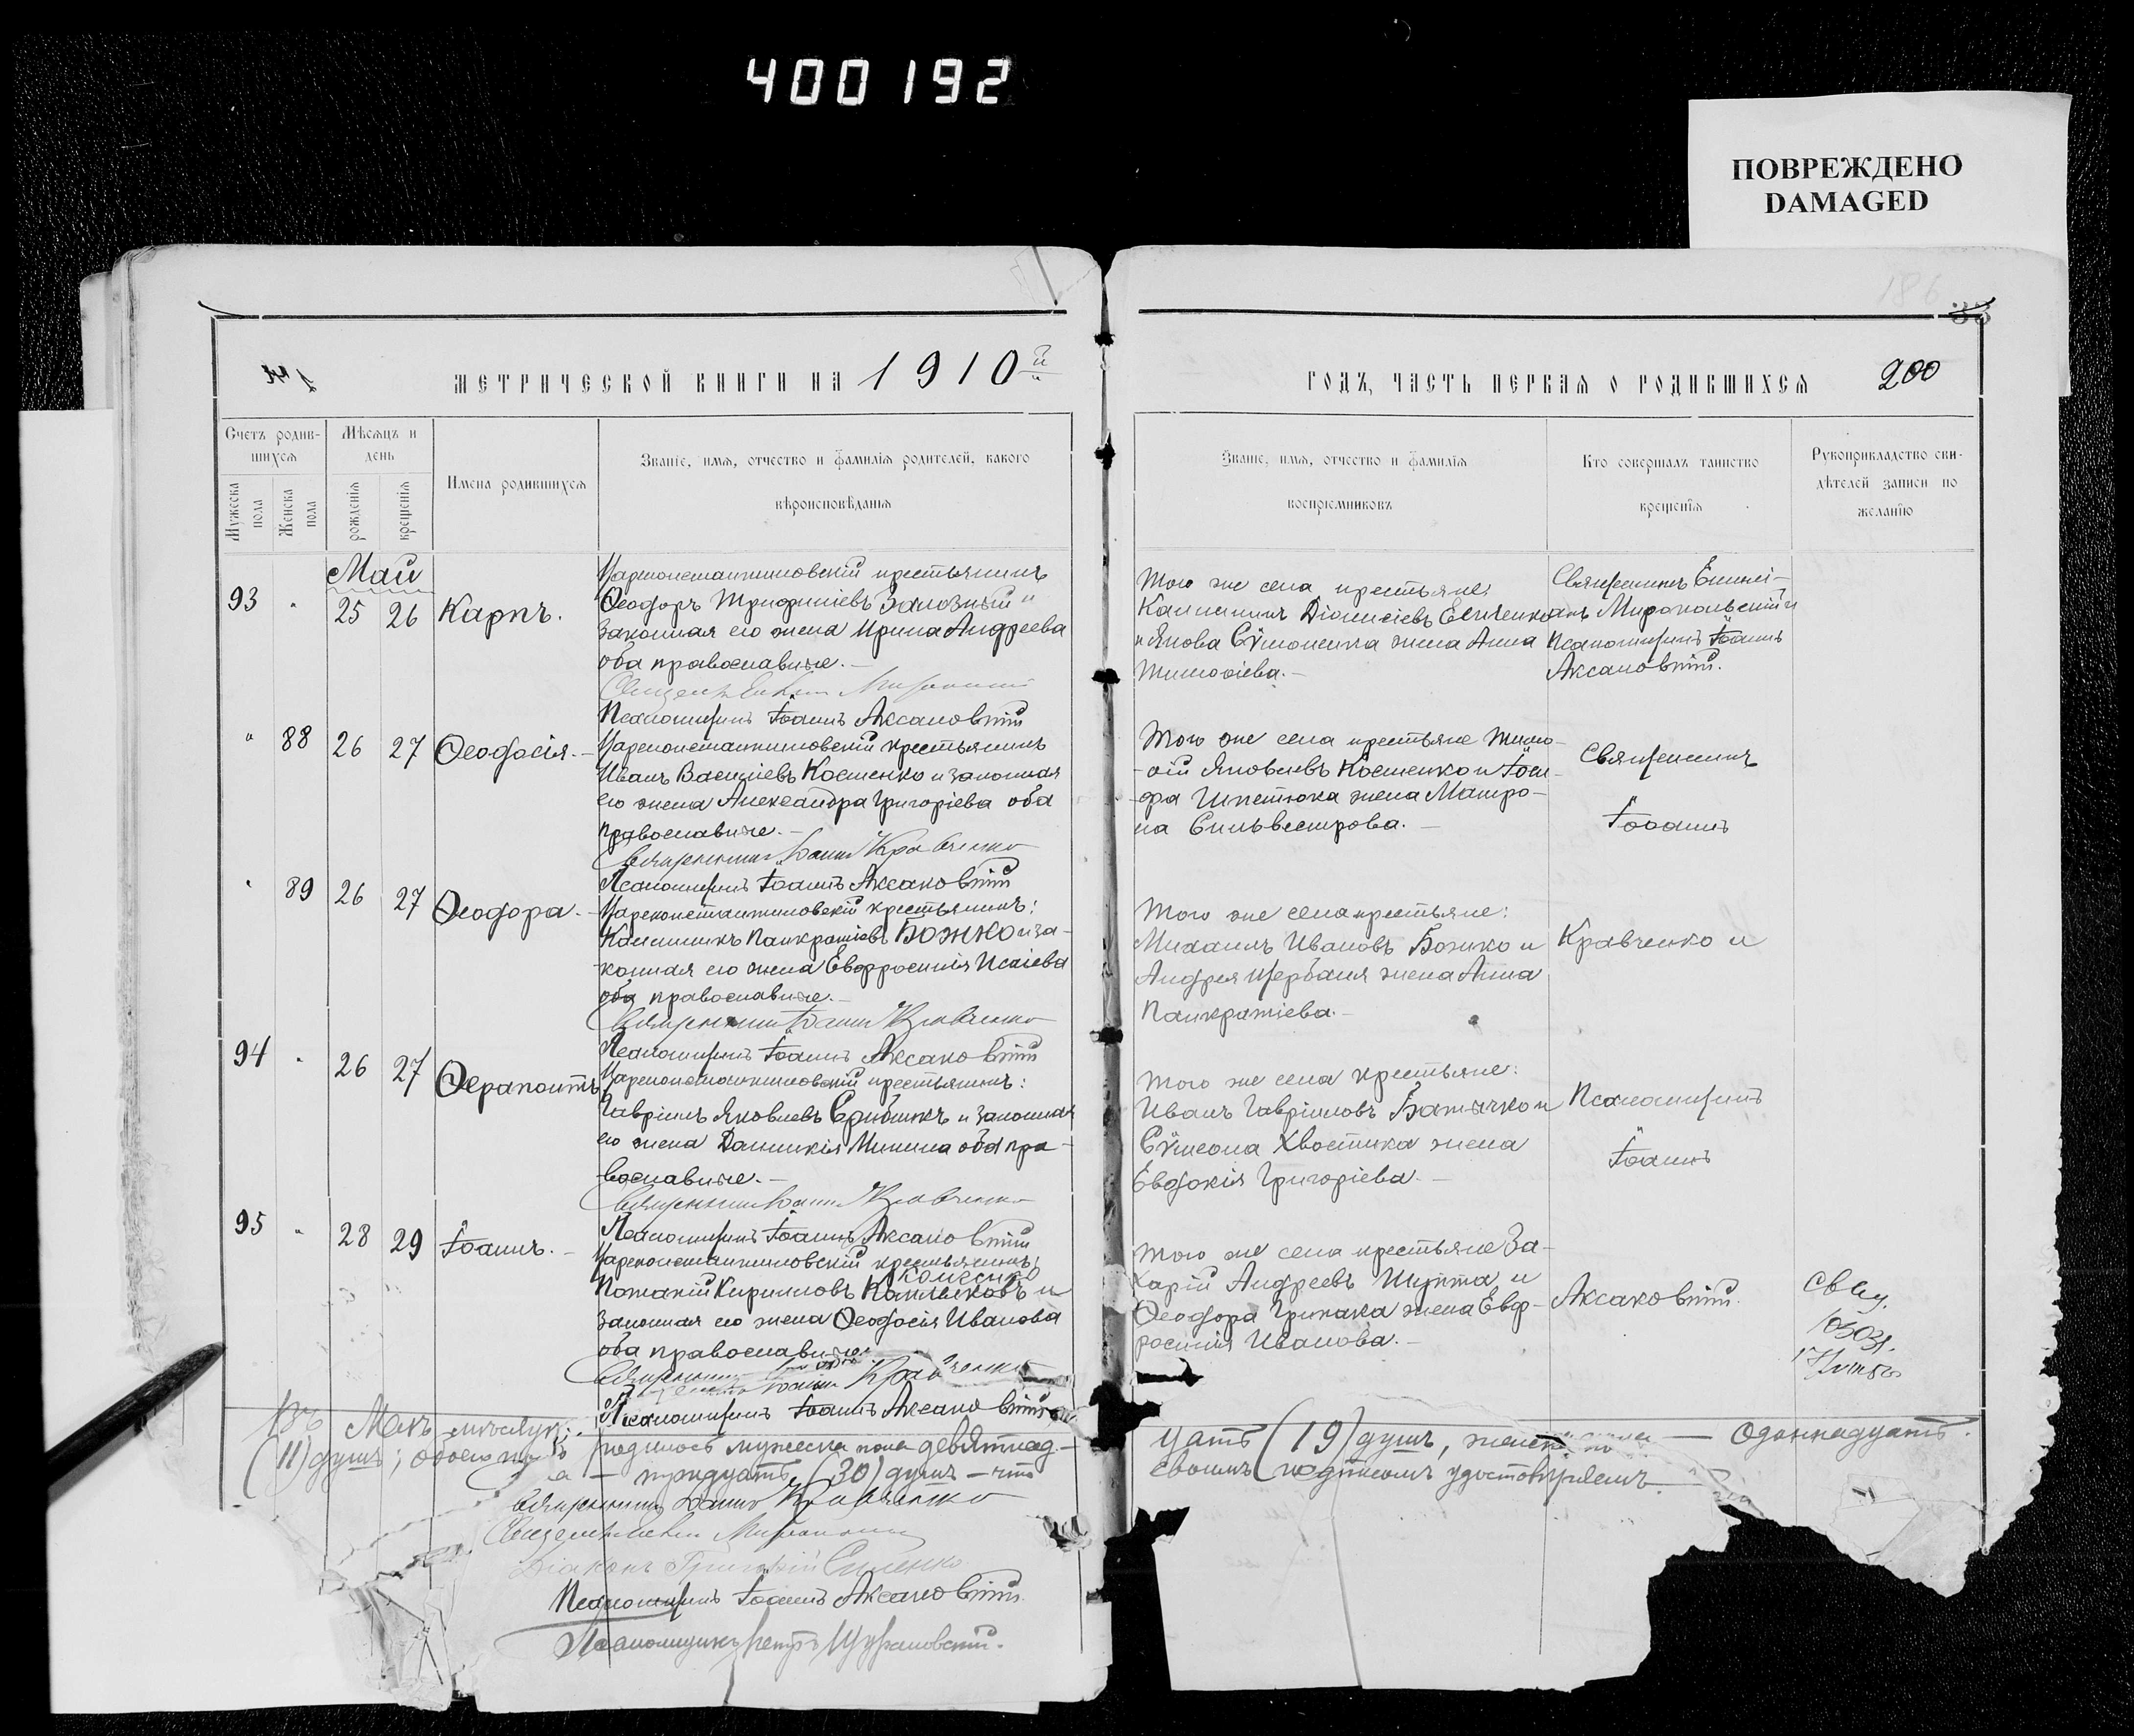 400192
ПОВРЕЖДЕНО
DAMAGED
186
МЕТРИЧЕСКОЙ КНИГИ НА 1910й
ГОДЪ, ЧАСТЬ ПЕРВАЯ О РОДИВШИХСЯ
200
Счетъ родив-
шихся
Мѣсяцъ и
день
Мужеска
пола
Женска
пола
рожденія
крещенія
Имена родившихся
Званіе, имя, отчество и фамилія родителей, какого
вѣроисповѣданія
Званіе, имя, отчество и фамилія
воспріемниковъ
Кто совершалъ таинство
крещенія
Рукоприкладство сви-
дѣтелей записи по
желанію
Май
93 " 25 26 Карпъ.
Цареконстантиновскій крестьянинъ
Ѳеодоръ Трифиліевъ Зализный и
законная его жена Ирина Андреева
оба православные.
Псаломщикъ Іоаннъ Аксаковскій
Того же села крестьяне
Каллиникъ Діонисіевъ Евченко
и Якова Сѵмоненка жена Анна
Тимоѳіева.
Священникъ Евѳимі-
анъ Миропольскій и
Псаломщикъ Іоаннъ
" 88 26 27 Ѳеодосія.
Цареконстантиновскій крестьянинъ
Иванъ Василіевъ Костенко и законная
его жена Александра Григоріева оба
православные.
Священникъ Іоаннъ Кравченко
Псаломщикъ Іоаннъ
Того же села крестьяне Тимо-
ѳій Яковлевъ Костенко и Іоси-
фа Шпетюка жена Матро-
на Сильвестрова.
Священникъ
Іоаннъ
" 89 26 27 Ѳеодора.
Цареконстантиновскій крестьянинъ:
Каллиникъ Панкратіевъ Божко и за-
конная его жена Евфросинія Исаіева
оба православные.
Священникъ Іоаннъ Кравченко
Псаломщикъ Іоаннъ
Того же села крестьяне:
Михаилъ Ивановъ Божко и
Андрея Щербаня жена Анна
Панкратіева.
Кравченко и
94 " 26 27 Ѳерапонтъ
Цареконстантиновскій крестьянинъ:
Гавріилъ Яковлевъ и законная
его жена Минина оба пра-
вославные.
Священникъ Іоаннъ Кравченко
Псаломщикъ Іоаннъ
Того же села крестьяне:
Иванъ Гавріиловъ и
Сѵмеона Хвостика жена
Евдокія Григоріева.
Псаломщикъ
Іоаннъ
95 " 28 29 Іоаннъ.
Цареконстантиновскій крестьянинъ
Кирилловъ и
законная его жена Ѳеодосія Иванова
оба православные.
Священникъ Іоаннъ Кравченко
Псаломщикъ Іоаннъ
Того же села крестьяне За-
харій Андреевъ Шупта и
Ѳеодора жена Евф-
росинія Иванова.
Въ Маѣ мѣсяцѣ
родилось мужеска пола девятнад-
цать (19) душъ, женска пола — одиннадцать
(11) душъ; обоего пола — тридцать (30) душъ — что
своимъ подписомъ удостовѣряемъ.
Священникъ Іоаннъ Кравченко
Діаконъ Григорій
Псаломщикъ Іоаннъ
Псаломщикъ Петръ